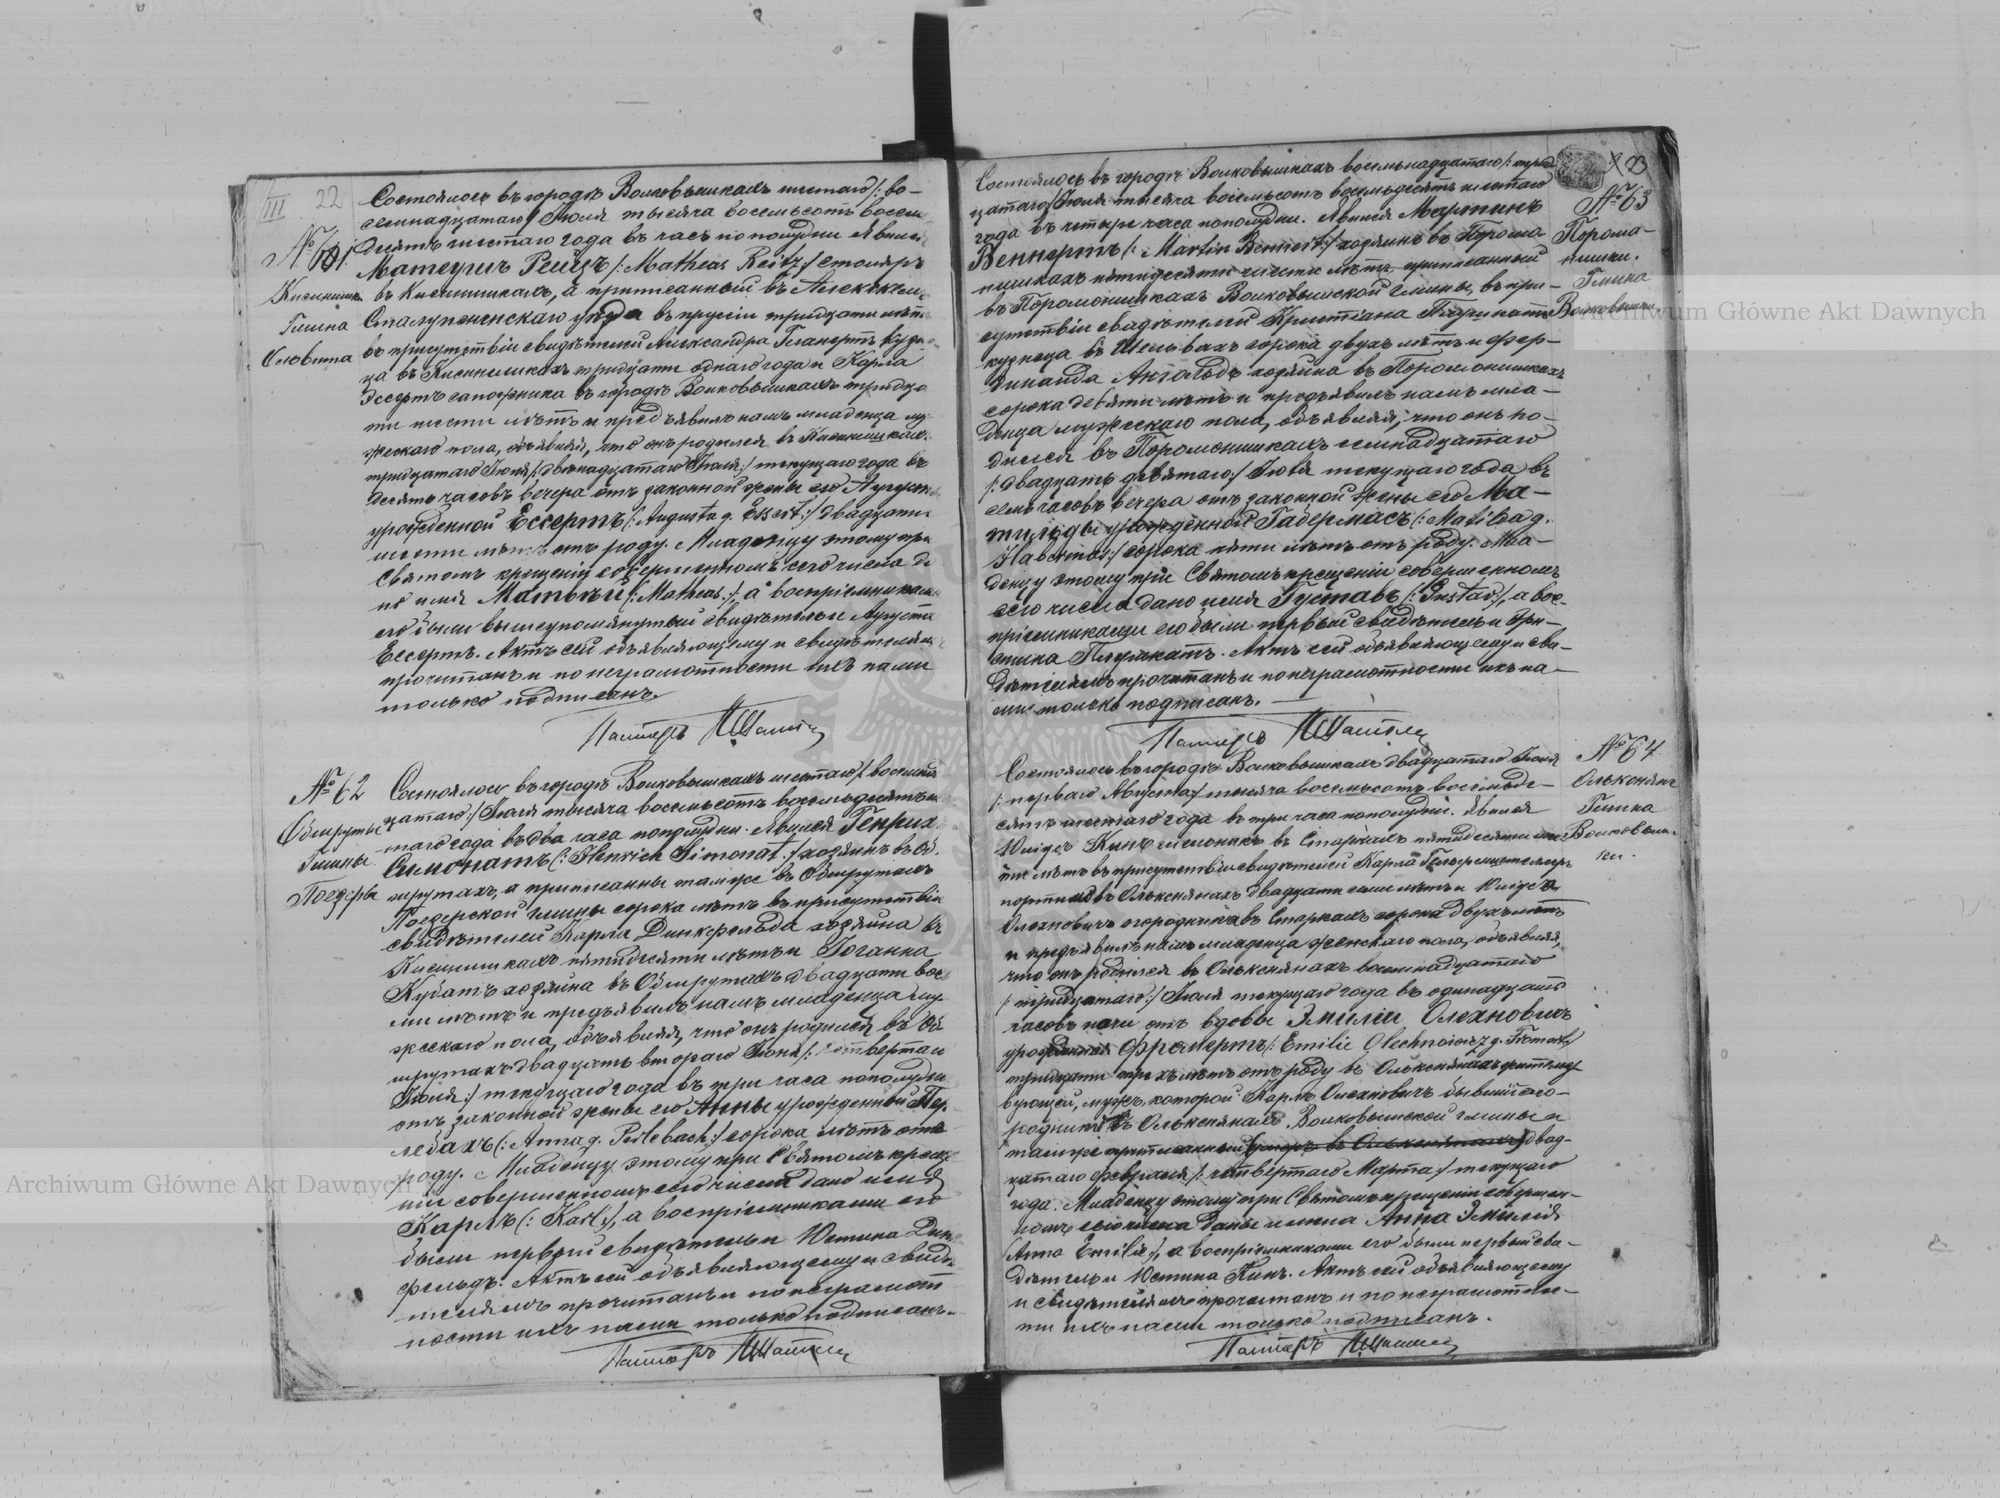 III 22
№ 61.
Кисинишки
Гмина
Слобвина
Состоялось въ городѣ Волковышкахъ шестаго /: во-
семнадцатаго/ Іюля тысяча восемьсотъ восем
десятъ шестаго года въ часъ пополудни Явился
Матеушъ Рейцъ /: Matheas Reitz :/ столяръ
въ Кисинишкахъ, а приписанный въ
Сталупененскаго уѣзда въ Прусіи тридцати лѣтъ
въ присутствіи свидѣтелей Александра Планертъ кузне
ца въ Кисинишкахъ тридцати одного года и Карла
Эссертъ сапожника въ городѣ Волковышкахъ тридца
ти шести лѣтъ и предъявилъ намъ младенца му
жескаго пола, объявляя, что онъ родился въ Кисинишкахъ
тридцатаго Іюня /: двѣнадцатаго Іюля :/ текущаго года въ
десять часовъ вечера отъ законной жены его Августы
урожденной Ессертъ /: Augusta g. Essert :/ двадцати
шести лѣтъ отъ роду. Младенцу этому при
Святомъ крещеніи совершенномъ сего числа да
но имя Матвѣй /: Matheas :/, а воспріемниками
его были вышеупомянутый свидѣтель и Августа
Ессертъ. Актъ сей объявляющему и свидѣтелямъ
прочитанъ и по неграмотности ихъ нами
только подписанъ.
Пасторъ
№ 62
Обшруты
Гмины
Погерны
Состоялось въ городѣ Волковышкахъ шестаго / восемна
цатаго :/ Іюля тысяча восемьсотъ восемьдесятъ ше
таго года въ два часа пополудни. Явился Генрих
Симонатъ /: Henrich Simonat :/ хозяинъ въ Об
шрутахъ, а приписанный тамже въ Обшрутахъ
гмины сорока лѣтъ въ присутствіи
свидѣтелей Карла Динкфельда хозяина въ
Кисинишкахъ пятидесяти лѣтъ и Іоганна
Кубатъ хозяина въ Обшрутахъ двадцати вос
ми лѣтъ и предъявилъ намъ младенца му
жескаго пола, объявляя, что онъ родился въ Об
шрутахъ двадцать втораго Іюня /: четвертаго
Іюля :/ текущаго года въ три часа пополудни
отъ законной жены его Анны урожденной Пер
лебахъ /: Anna g. Perlebach :/ сорока лѣтъ отъ
роду. Младенцу этому при Святомъ креще
ніи совершенномъ сего числа дано имя
Карлъ /: Karl :/, а воспріемниками его
были первый свидѣтель и Юстина Динк
фельдъ. Актъ сей объявляющему и свидѣ
телямъ прочитанъ и по неграмот
ности ихъ нами только подписанъ.
Пасторъ
23
№ 63
Порома-
нишки.
Гмина
Волковышки
Состоялось въ городѣ Волковышкахъ восемьнадцатаго /: трид
цатаго/ Іюля тысяча восемьсотъ восемьдесятъ шестаго
года въ четыре часа пополудни. Явился Мартинъ
Веннертъ /: Martin Wennert :/ хозяинъ въ Порома
нишкахъ пятидесяти лѣтъ, приписанный
въ Поромонишкахъ Волковышской Гмины, въ при-
сутствіи свидѣтелей Христіана Плушкатъ
кузнеца въ Шельвахъ сорока двухъ лѣтъ и Фер-
динанда хозяина въ Поромонишкахъ
сорока девяти лѣтъ и предъявилъ намъ мла-
денца мужескаго пола, объявляя, что онъ ро-
дился въ Поромонишкахъ семнадцатаго
/: двадцать девятаго :/ Іюля текущаго года въ
семь часовъ вечера отъ законной жены его Ма-
тильды урожденной Габермасъ /: Matilda g.
Habermas :/ сорока пяти лѣтъ отъ роду. Мла-
денцу этому при Святомъ крещеніи совершенномъ
сего числа дано имя Густавъ /: Gustav :/, а вос-
пріемниками его были первый свидѣтель и
Плушкатъ. Актъ сей объявляющему и сви-
дѣтелямъ прочитанъ и по неграмотности ихъ на-
ми только подписанъ.
Пасторъ
№ 64
Ольксняны
Гмина
Волковыш-
ки.
Состоялось въ городѣ Волковышкахъ двадцатаго Іюля
/: перваго Августа :/ тысяча восемьсотъ восемьде-
сятъ шестаго года въ три часа пополудни. Явился
Кинъ мельникъ въ Старкахъ пятидесяти
лѣтъ въ присутствіи свидѣтелей Карла
въ Ольксиянахъ двадцати семи лѣтъ и
Олехновичъ огородника въ Старкахъ сорока двухъ лѣтъ
и предъявилъ намъ младенца женскаго пола, объявляя,
что онъ родился въ Ольксиянахъ восемнадцатаго
/: тридцатаго :/ Іюля текущаго года въ одинадцать
часовъ ночи отъ вдовы Эмиліи Олехновичъ
урожденной Фромертъ /: Emilie Olechnowicz g. Fromert :/
тридцати трехъ лѣтъ отъ роду въ Ольксиянахъ жительст
вующей, мужъ которой Карлъ Олехновичъ бывшій ого-
родникъ въ Ольксиянахъ Волковышской гмины и
тамже приписанный умеръ въ Ольксиянахъ двад-
цатаго Февраля /: четвертаго Марта :/ текущаго
года. Младенцу этому при Святомъ крещеніи совершен-
номъ сего числа даны имена Анна Эмилія
/Anna Emilie :/, а воспріемниками его были первый сви-
дѣтель и Юстина Кинъ. Актъ сей объявляющему
и свидѣтелямъ прочитанъ и по неграмотнос-
ти ихъ нами только подписанъ.
Пасторъ
Archiwum Główne Akt Dawnych
Archiwum Główne Akt Dawnych